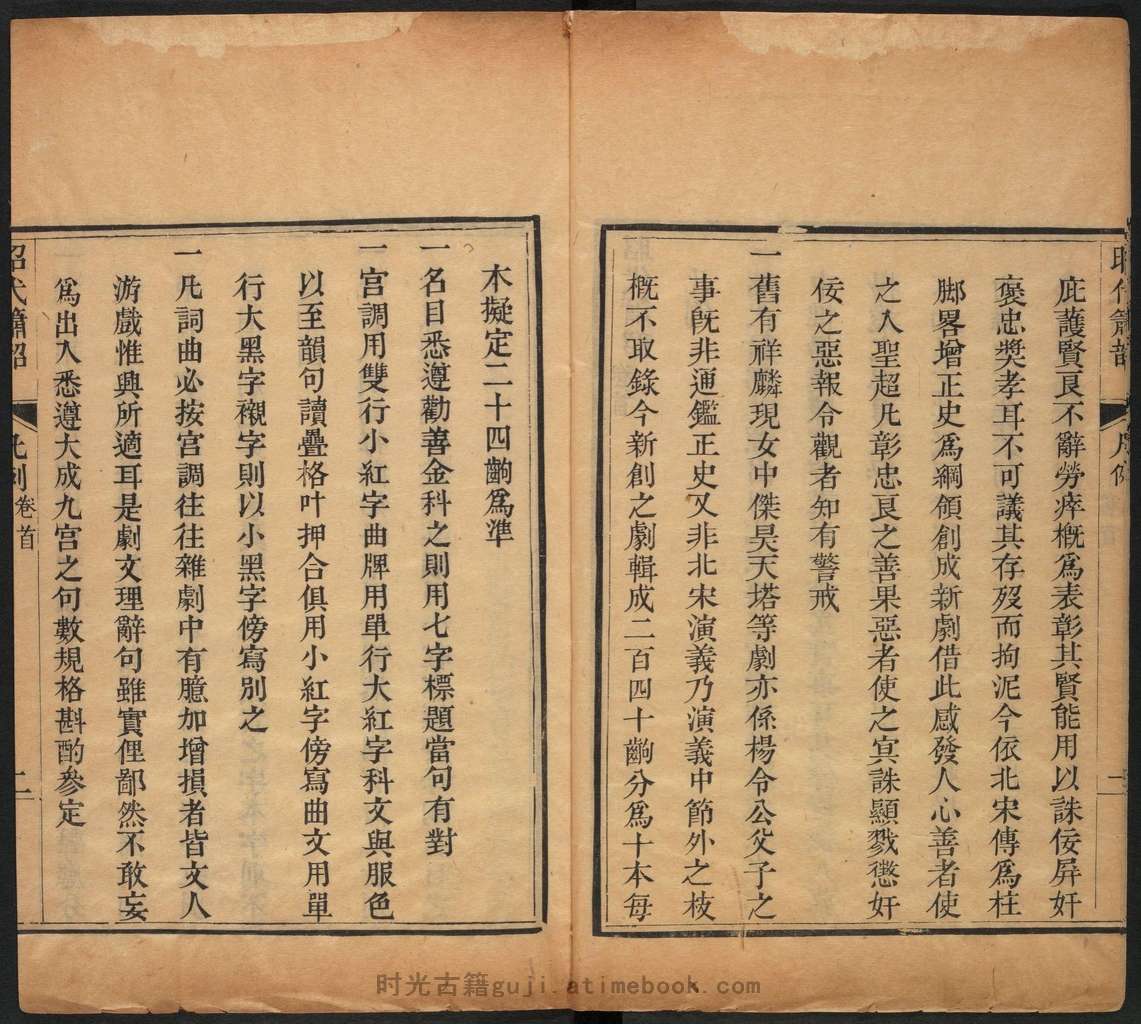 庇護賢良不辭勞瘁概爲表彰其賢能用以誅佞屏奸
褒忠奬孝耳不可議其存歿而拘泥今依北宋傳爲柱
脚畧增正史爲綱領創成新劇借此感發人心善者使
之入聖超凡彰忠良之善果惡者使之冥誅顯戮懲奸
佞之惡報令觀者知有警戒
一舊有祥麟現女中傑昊天塔等劇亦係楊令公父子之
事旣非通鑑正史又非北宋演義乃演義中節外之枝
概不取錄今新創之劇輯成二百四十齣分爲十本每
本擬定二十四齣爲準
一名目悉遵勸善金科之則用七字標題當句有對
一宮調用雙行小紅字曲牌用單行大紅字科文與服色
以至韻句讀疊格叶押合俱用小紅字傍寫曲文用單
行大黑字襯字則以小黑字傍寫別之
一凡詞曲必按宮調往往雜劇中有臆加增損者皆文人
游戲惟興所適耳是劇文理辭句雖實俚鄙然不敢妄
爲出入悉遵大成九宮之句數規格斟酌參定
昭代簫韶
凡例卷首
二
时光古籍guji.atimebook.com